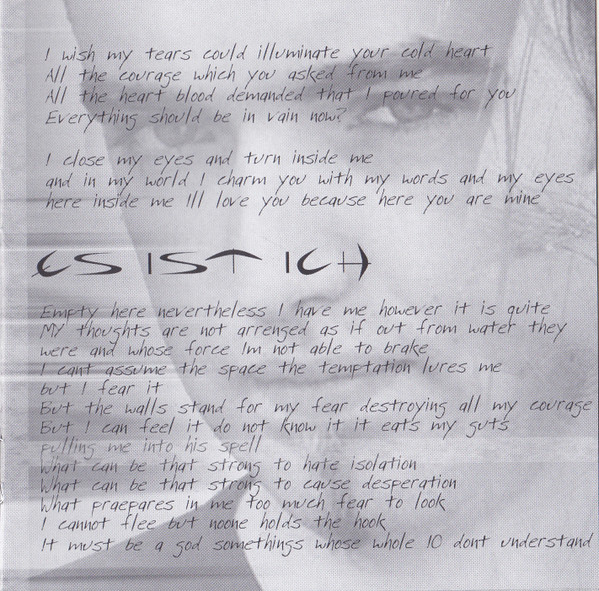 I wish my tears could illuminate your cold heart
All the courage which you asked from me
All the heart blood demanded that I poured for you
Everything should be in vain now?
I close my eyes and turn inside me
and in my world I charm you with my words and my eyes
here inside me Ill love you because here you are mine
ES IST ICH
Empty here nevertheless I have me however it is quite
MY thoughts are not arrenged as if out from water they
were and whose force Im not able to brake
I cant assume the space the temptation lures me
but I fear it
But the walls stand for my fear destroying all my courage
But I can feel it do not know it it eats my guts
pulling me into his spell
What can be that strong to hate isolation
What can be that strong to cause desperation
What praepares in me too much fear to look
I cannot flee but noone holds the hook
It must be a god somethings whose whole IO dont understand